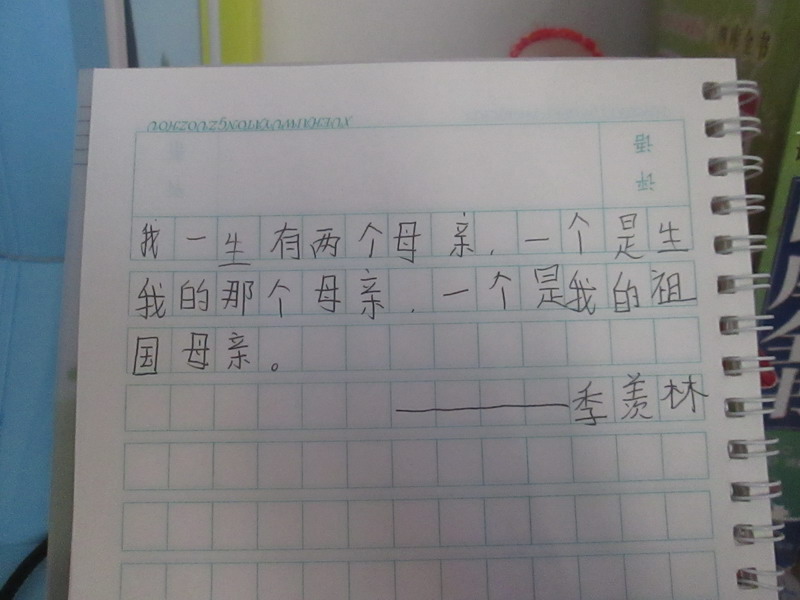 XUEHAIWUYATONGZUOZHOU
评语
我一生有两个母亲,一个是生
我的那个母亲,一个是我的祖
国母亲。
————季羡林